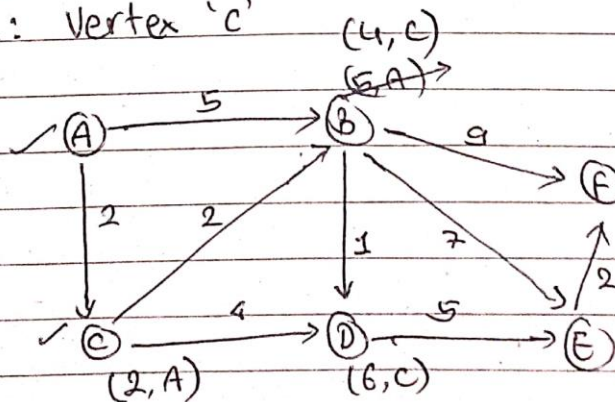 : Vertex 'C'
(4, C)
(5, A)
5
A
B
9
F
2
2
1
7
2
4
5
C
D
E
(2, A)
(6, C)